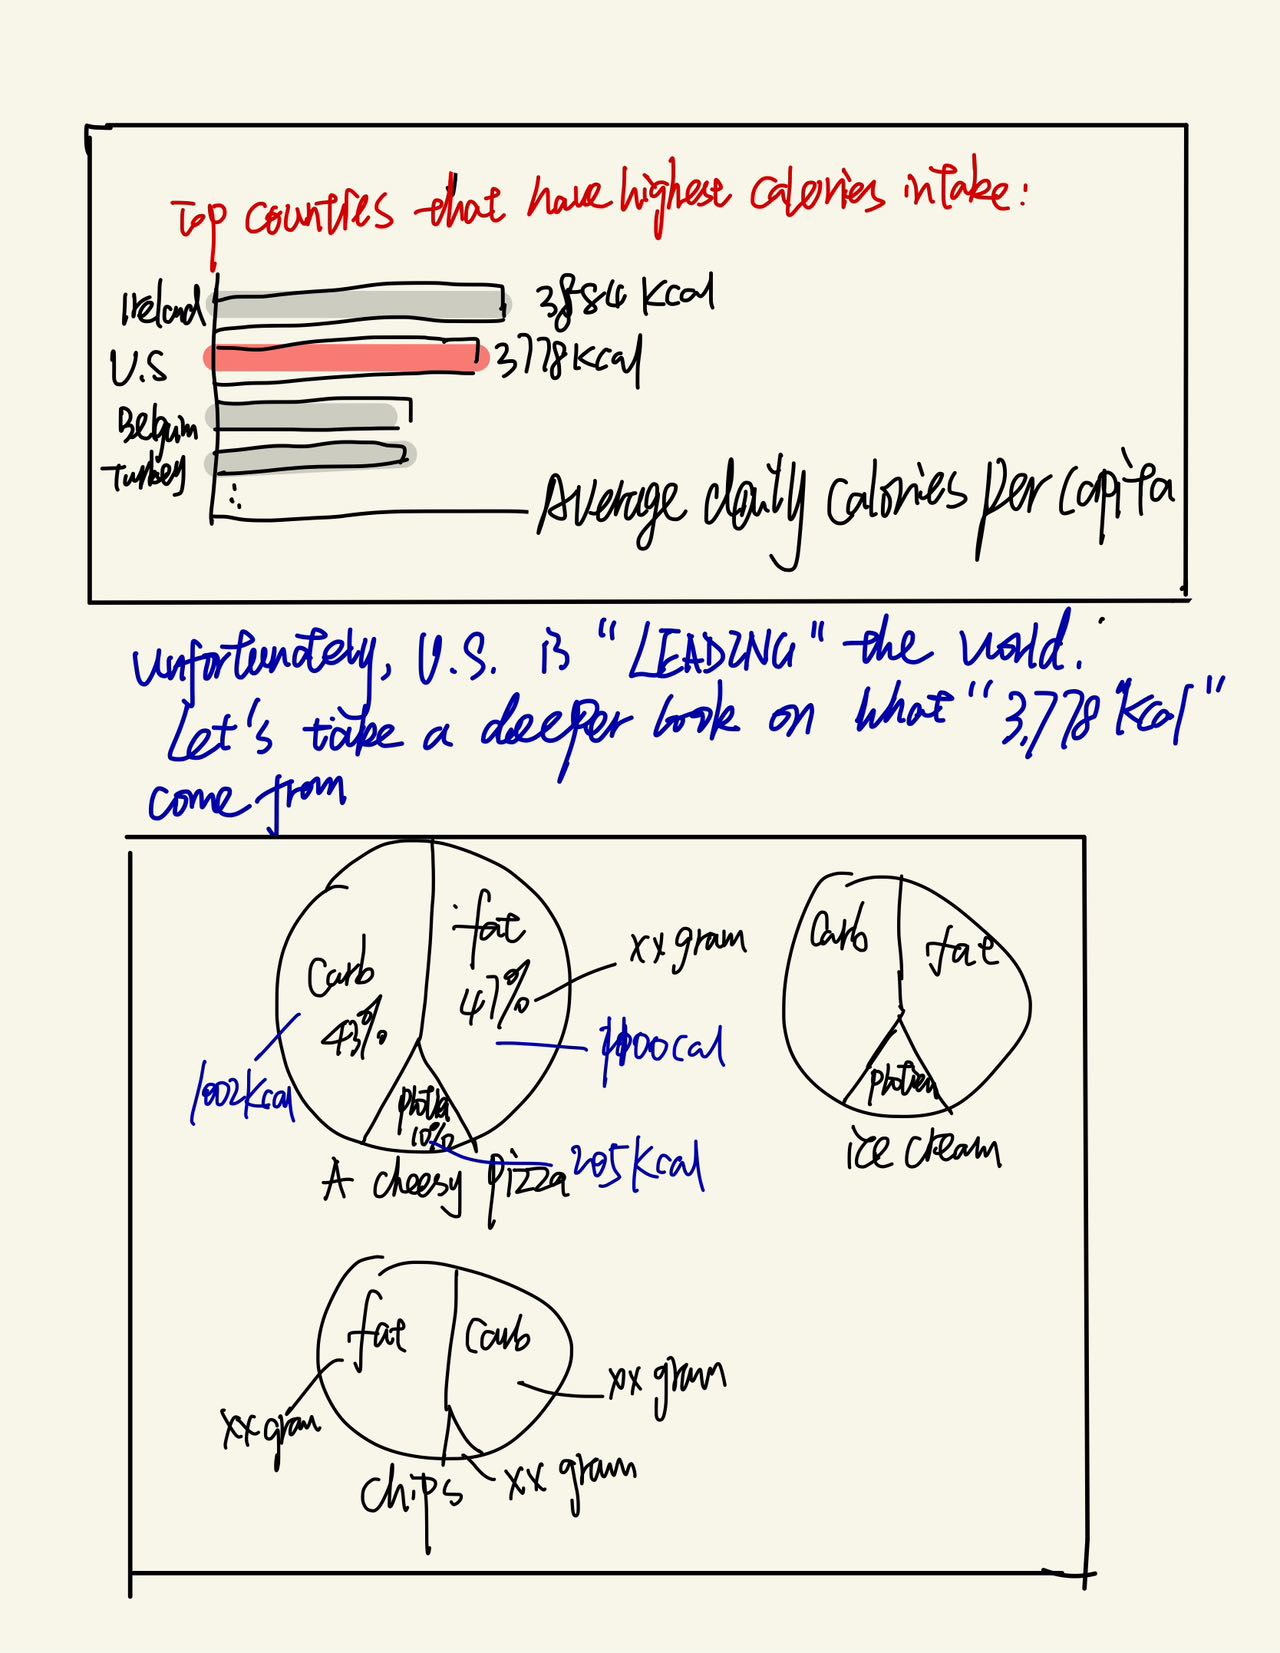 Top countries that have highest calories intake:
Ireland 3884 Kcal
U.S 3778 Kcal
Belguim
Turkey
Average daily calories per capita
Unfortunately, U.S. is "LEADING" the world.
Let's take a deeper look on what "3,778 Kcal"
come from
fat
47%
xx gram
Carb
43%
1002 Kcal
1100 cal
10%
205 Kcal
A cheesy pizza
Carb
fat
ice cream
fat
Carb
xx gram
xx gram
xx gram
chips